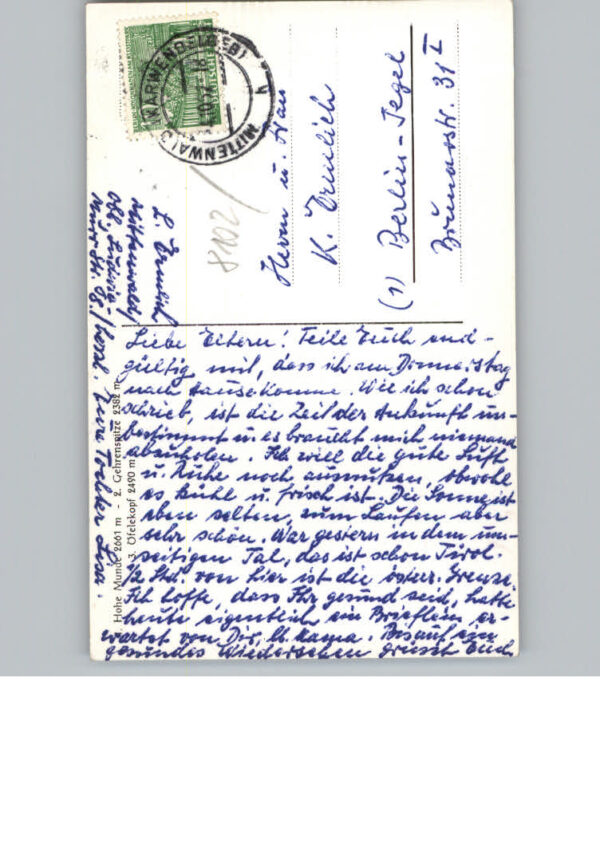 MITTENWALD
(KARWENDELGEB)
8102/
Herrn u. Frau
K.
(1) Berlin-Tegel
Brunowstr. 31 I
L.
Mittenwald/
Obb.
Liebe Eltern! Teile Euch end-
gültig mit, dass ich am Donnerstag
nach Hause komme. Wie ich schon
schrieb, ist die Zeit der Ankunft un-
bestimmt u. es braucht mich niemand
abzuholen. Ich will die gute Luft
u. Ruhe noch ausnutzen, obwohl
es kühl u. frisch ist. Die Sonne ist
eben selten, zum Laufen aber
sehr schön. War gestern in dem
seitigen Tal, das ist schon Tirol.
1/2 Std. von hier ist die österr. Grenze.
Ich hoffe, dass Ihr gesund seid, hatte
heute eigentlich ein Brieflein er-
wartet von Dir, lb. Mama. Bis auf ein
gesundes Wiedersehen grüsst Euch
Eure Tochter Lisa.
1. Hohe Munde 2661 m - 2. Gehrenspitze 2382 m
3. Ofelekopf 2490 m